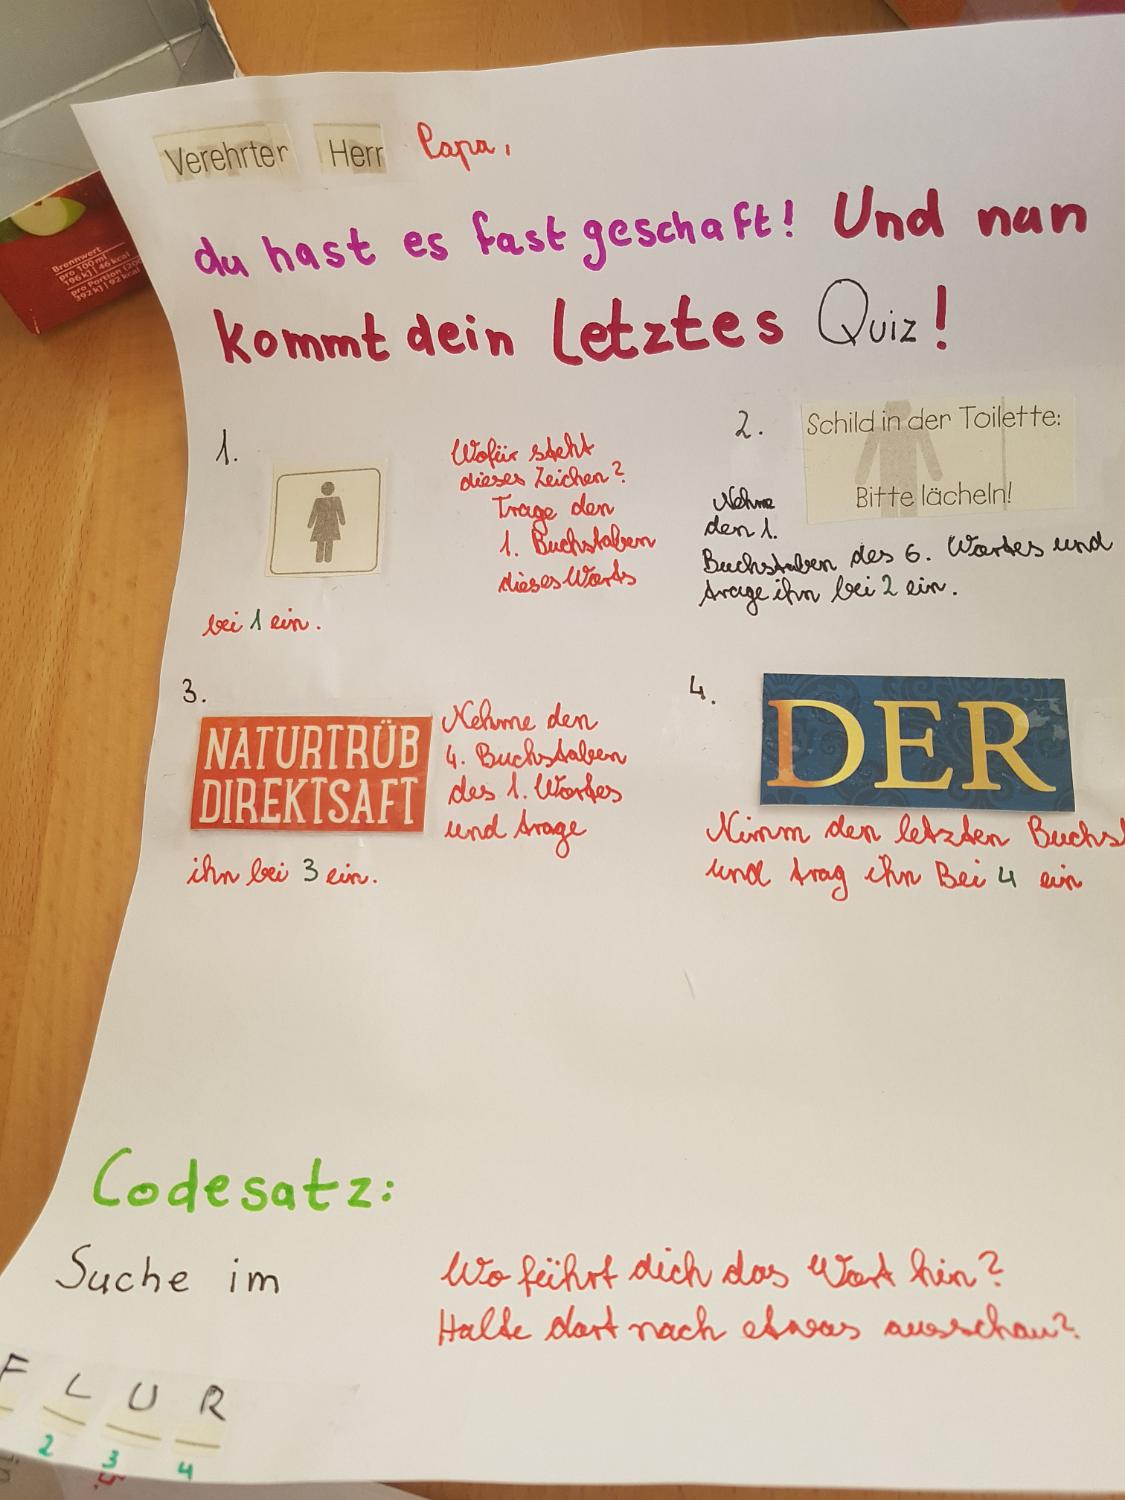 Verehrter Herr Papa,
du hast es fast geschaft! Und nun
kommt dein letztes Quiz!
1.
Wofür steht
dieses Zeichen?
Trage den
1. Buchstaben
dieses Worts
bei 1 ein.
2.
Schild in der Toilette:
Bitte lächeln!
Nehme
den 1.
Buchstaben des 6. Wortes und
trage ihn bei 2 ein.
3.
NATURTRÜB
DIREKTSAFT
Nehme den
4. Buchstaben
des 1. Wortes
und trage
ihn bei 3 ein.
4.
DER
Nimm den letzten Buchst
und trag ihn Bei 4 ein
Codesatz:
Suche im
Wo führt dich das Wort hin?
Halte dort nach etwas ausschau?
F L U R
2 3 4
Brennwert
pro 100 ml
196 kJ | 46 kcal
pro Portion (200
392 kJ | 92 kcal